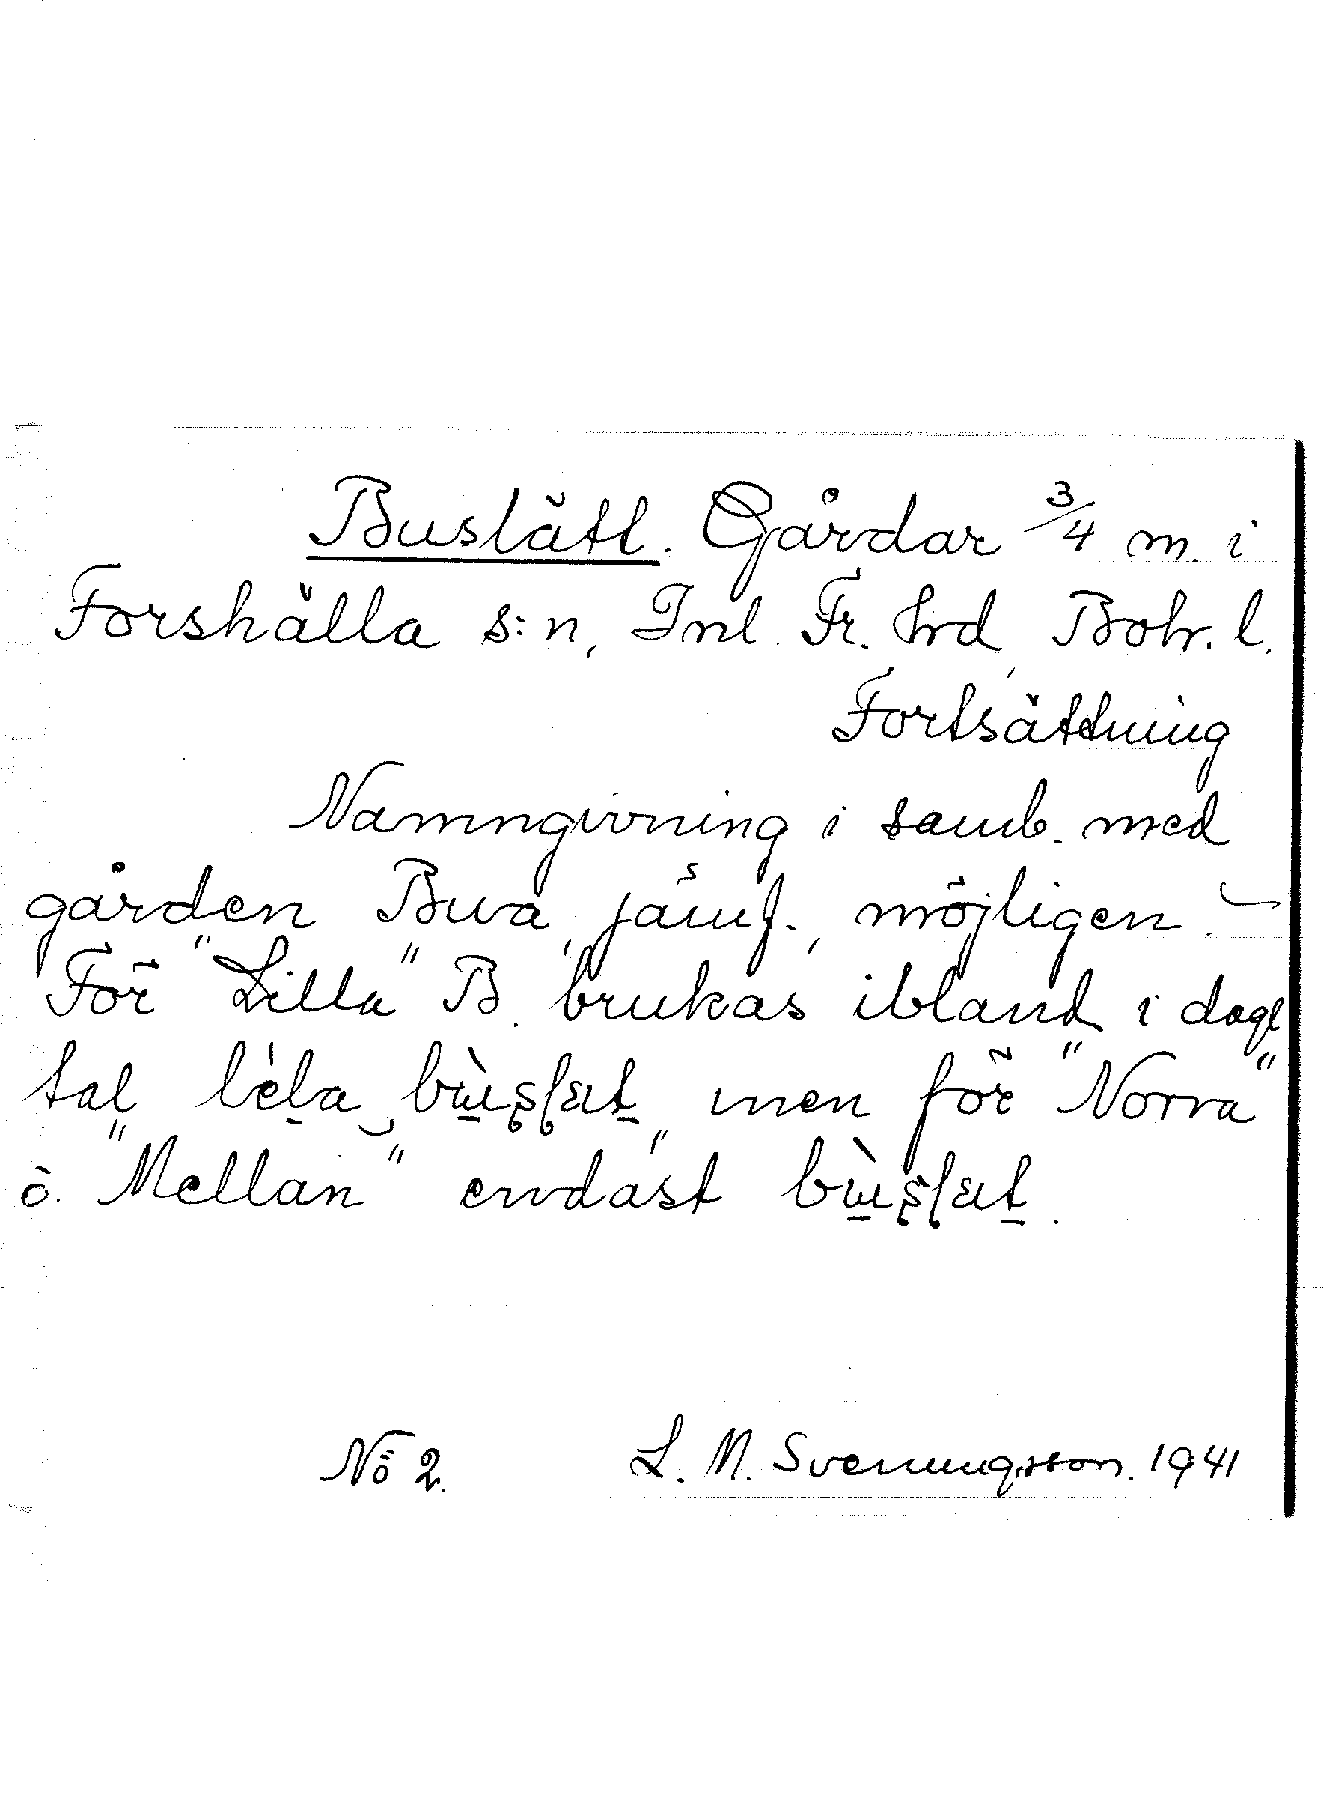 Buslätt. Gårdar 3/4 m. i
Forshälla s:n, Inl. Fr. hrd, Boh. l.
Fortsättning
Namngivning i samb. med
gården Buva, jämf., möjligen. –
För "Lilla" B. brukas ibland i dagl
tal men för "Norra"
o. "Mellan" endast
No 2. L. M. Svenungsson. 1941